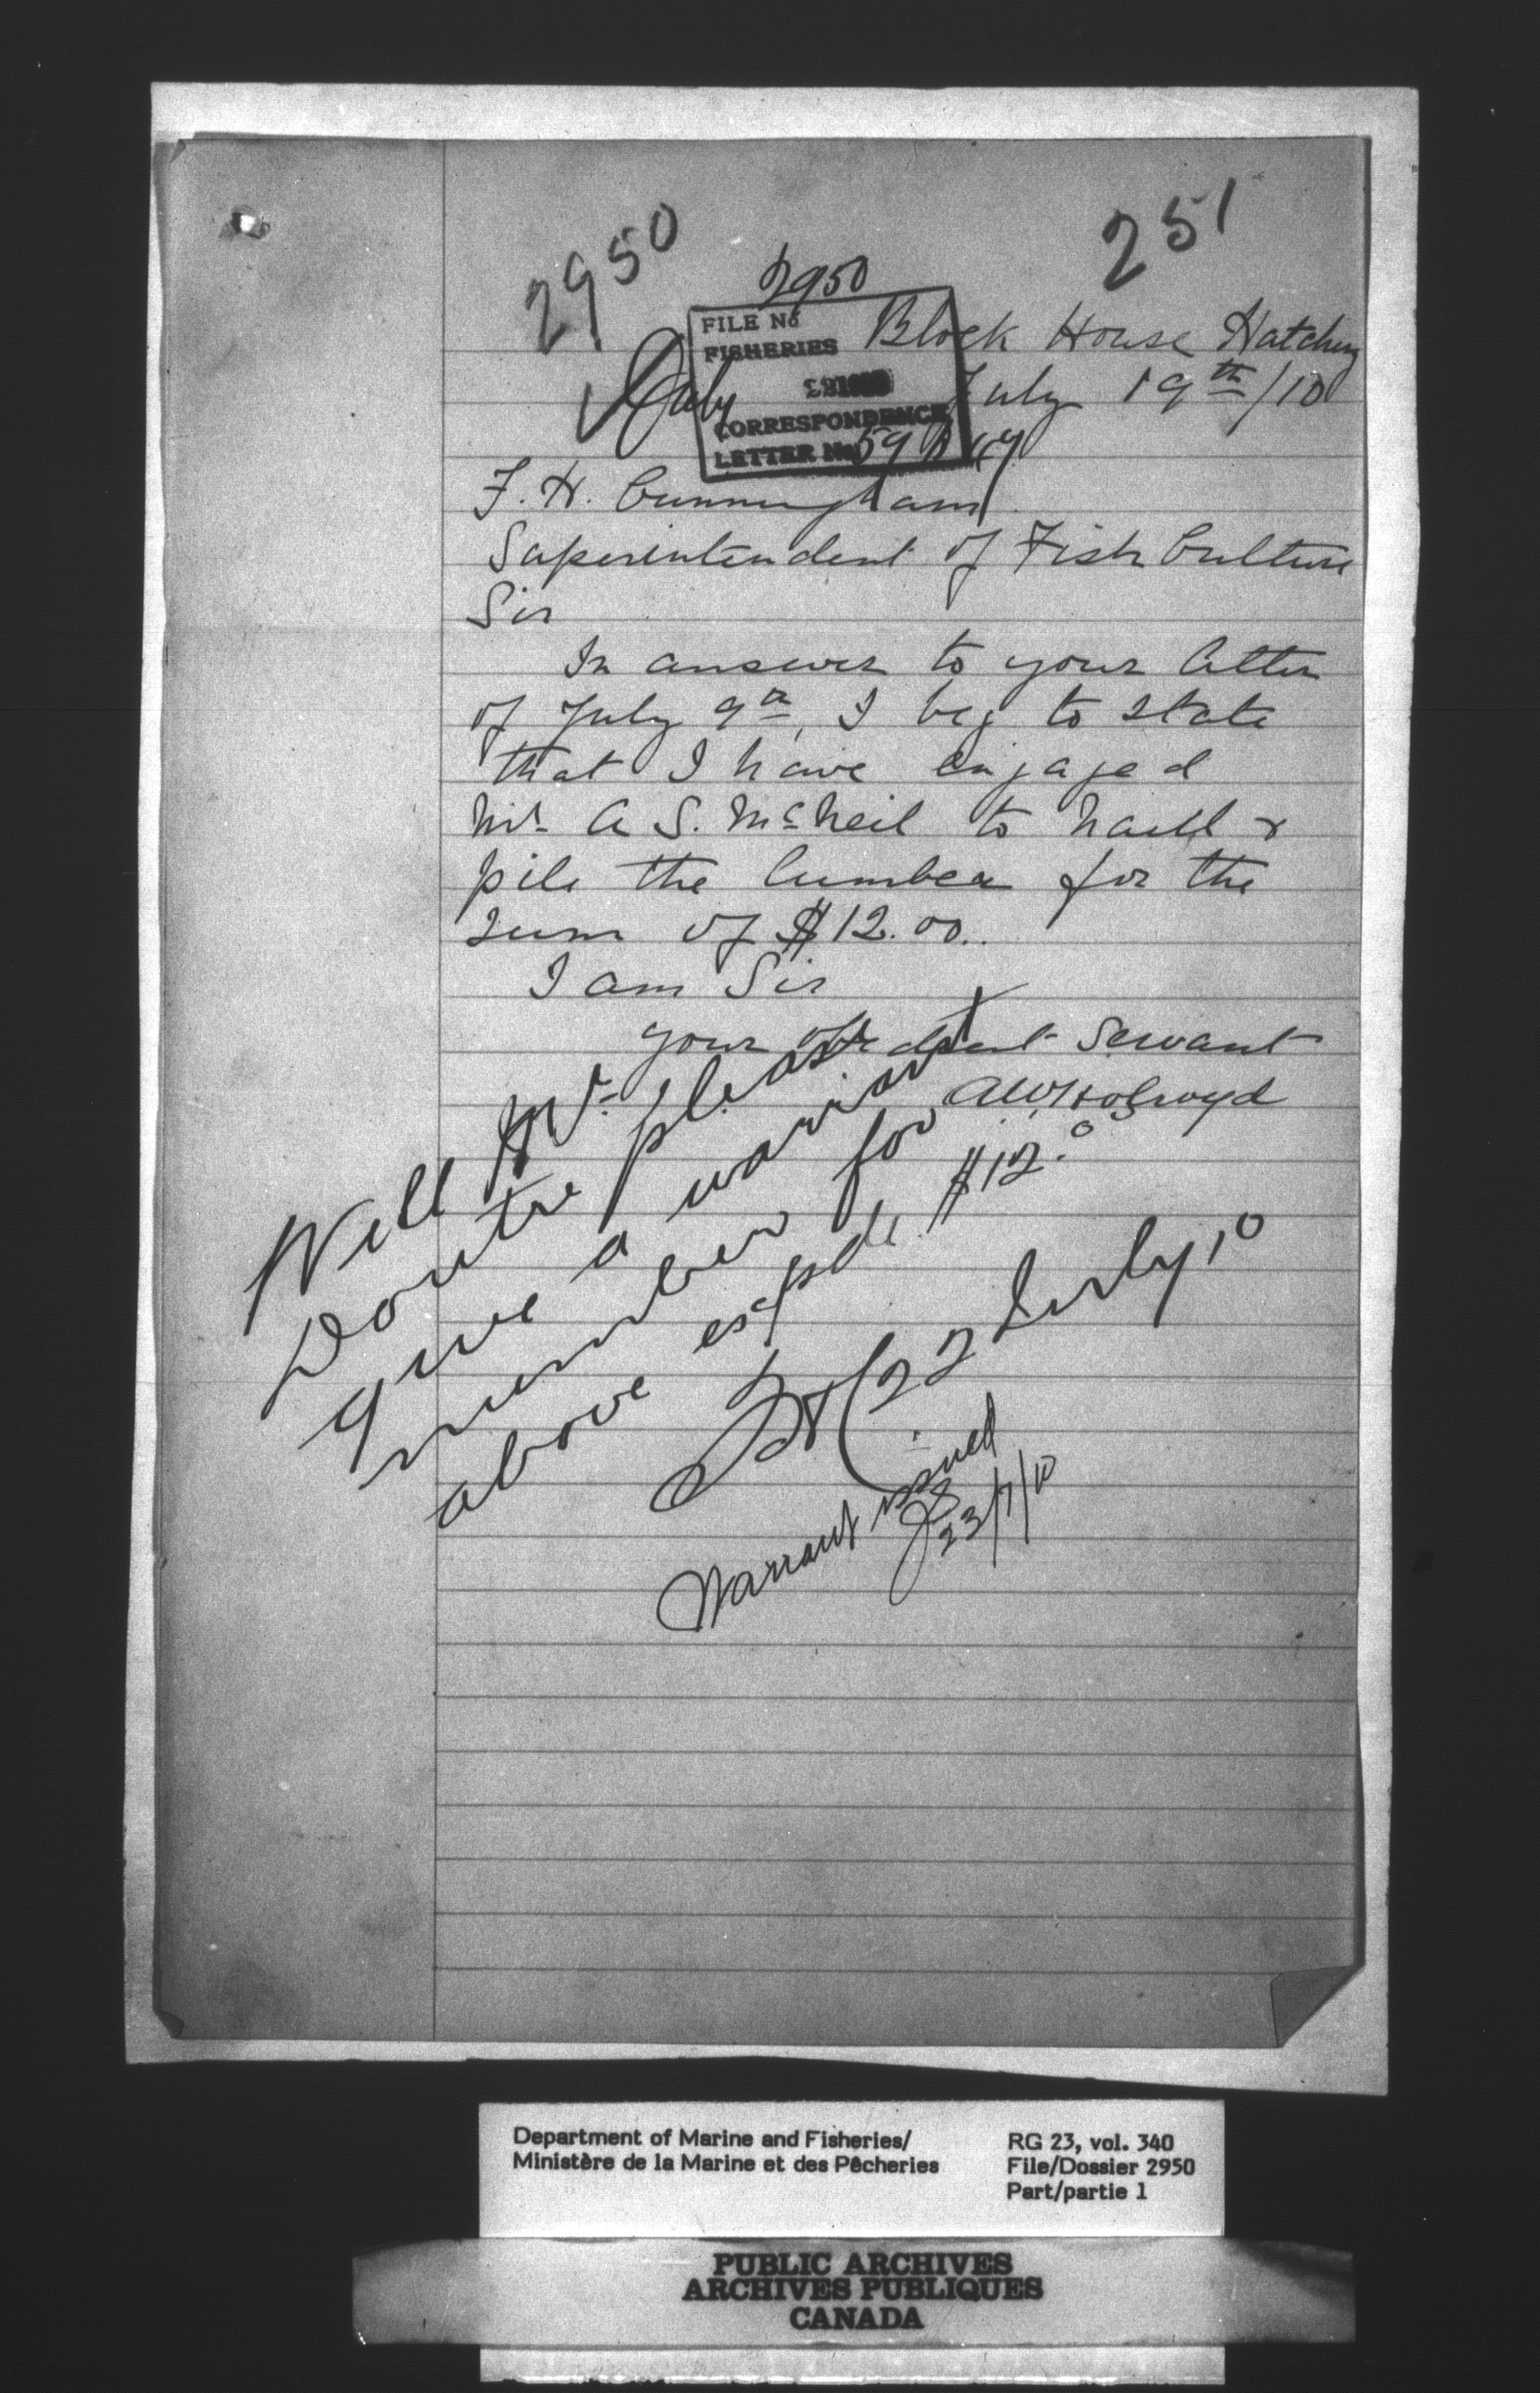 2950
251
2950
FILE No
FISHERIES
CORRESPONDENCE
LETTER No
Block House Hatchery
July 19th/10
F. H. Cunningham
Superintendent of Fish Culture
Sir
In answer to your letter
of July 9th, I beg to state
that I have engaged
Mr A S. McNeil to haul &
pile the lumber for the
sum of $12.00.
I am Sir
your obedient Servant
A W Holroyd
Will Mr
Doutre please
give a warrant
number for
above $12.0
22 July 10
Warrant issued
23/7/10
Department of Marine and Fisheries/
Ministère de la Marine et des Pêcheries
RG 23, vol. 340
File/Dossier 2950
Part/partie 1
PUBLIC ARCHIVES
ARCHIVES PUBLIQUES
CANADA